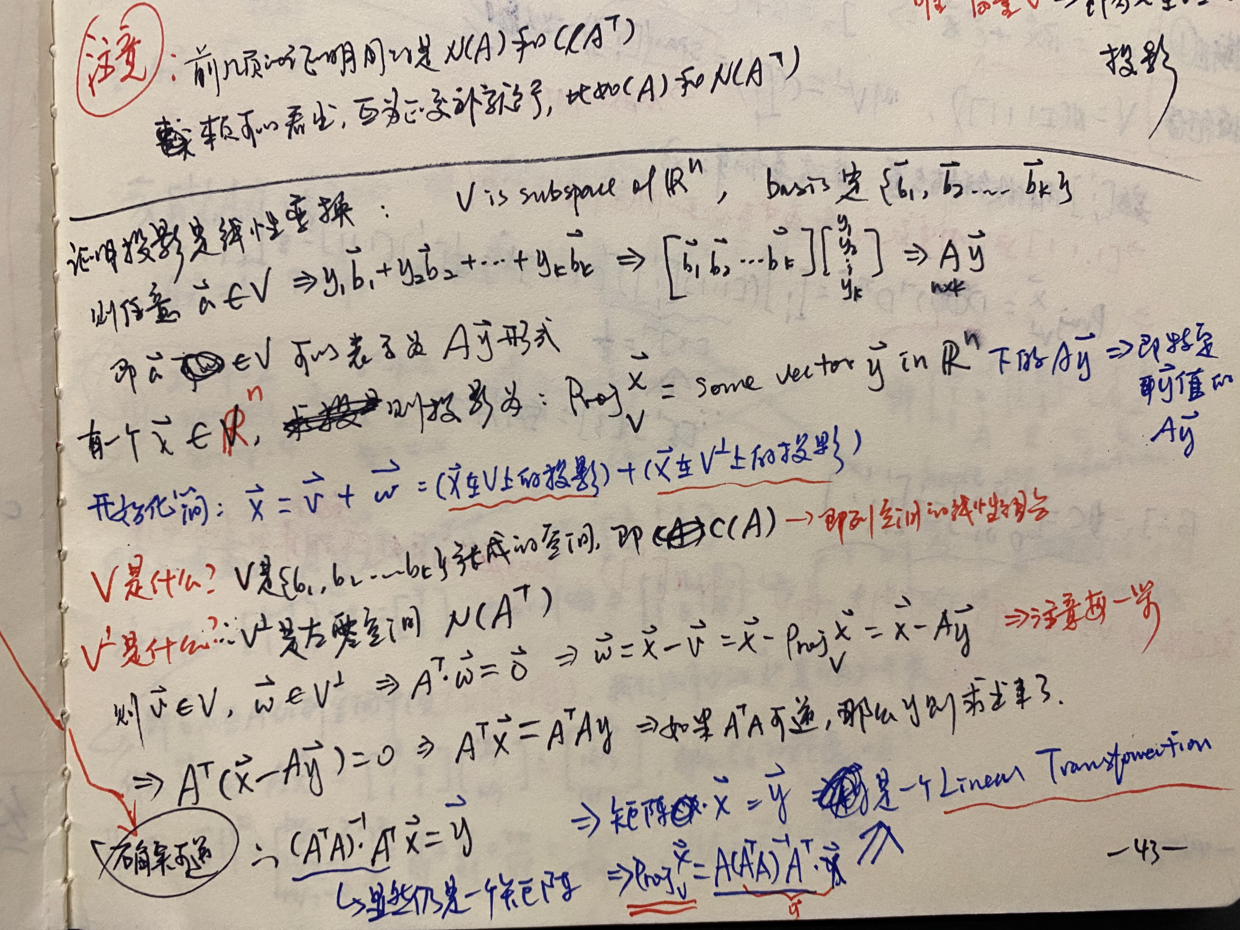 投影
注意：前几项的证明用的是 N(A) 和 C(Aᵀ)
可以看出，互为正交补就行，比如 C(A) 和 N(Aᵀ)
证明投影是线性变换： V is subspace of ℝⁿ, basis是 {b⃗₁, b⃗₂ .... b⃗ₖ}
则任意 a⃗ ∈ V ⇒ y₁b⃗₁ + y₂b⃗₂ + ... + yₖb⃗ₖ ⇒ [b⃗₁ b⃗₂ ... b⃗ₖ] [y₁ y₂ ⋮ yₖ] ⇒ A y⃗ n×k
即 a⃗ ∈ V 可以表示为 Ay⃗ 形式
有一个 x⃗ ∈ ℝⁿ, 则投影为：Proj_V x⃗ = some vector y⃗ in ℝⁿ 下的 Ay⃗ ⇒ 即特定
y⃗值的
Ay⃗
开始化简：x⃗ = v⃗ + w⃗ = (x⃗在V上的投影) + (x⃗在V⊥上的投影)
V是什么？V是{b₁, b₂ .... bₖ}张成的空间，即 C(A) → 即列空间的线性组合
V⊥是什么？∴ V⊥是左零空间 N(Aᵀ)
则 v⃗ ∈ V, w⃗ ∈ V⊥ ⇒ Aᵀ·w⃗ = 0⃗ ⇒ w⃗ = x⃗ - v⃗ = x⃗ - Proj_V x⃗ = x⃗ - Ay⃗ ⇒ 注意每一步
⇒ Aᵀ(x⃗ - Ay⃗) = 0 ⇒ Aᵀx⃗ = AᵀAy ⇒ 如果 AᵀA 可逆，那么 y 则求出来了.
确实可逆 ∴ (AᵀA)⁻¹·Aᵀx⃗ = y⃗ ⇒ 矩阵·x⃗ = y⃗ 是一个 Linear Transformation
↳ 显然仍是一个矩阵 ⇒ Proj_V x⃗ = A(AᵀA)⁻¹Aᵀ·x⃗
y⃗
—43—